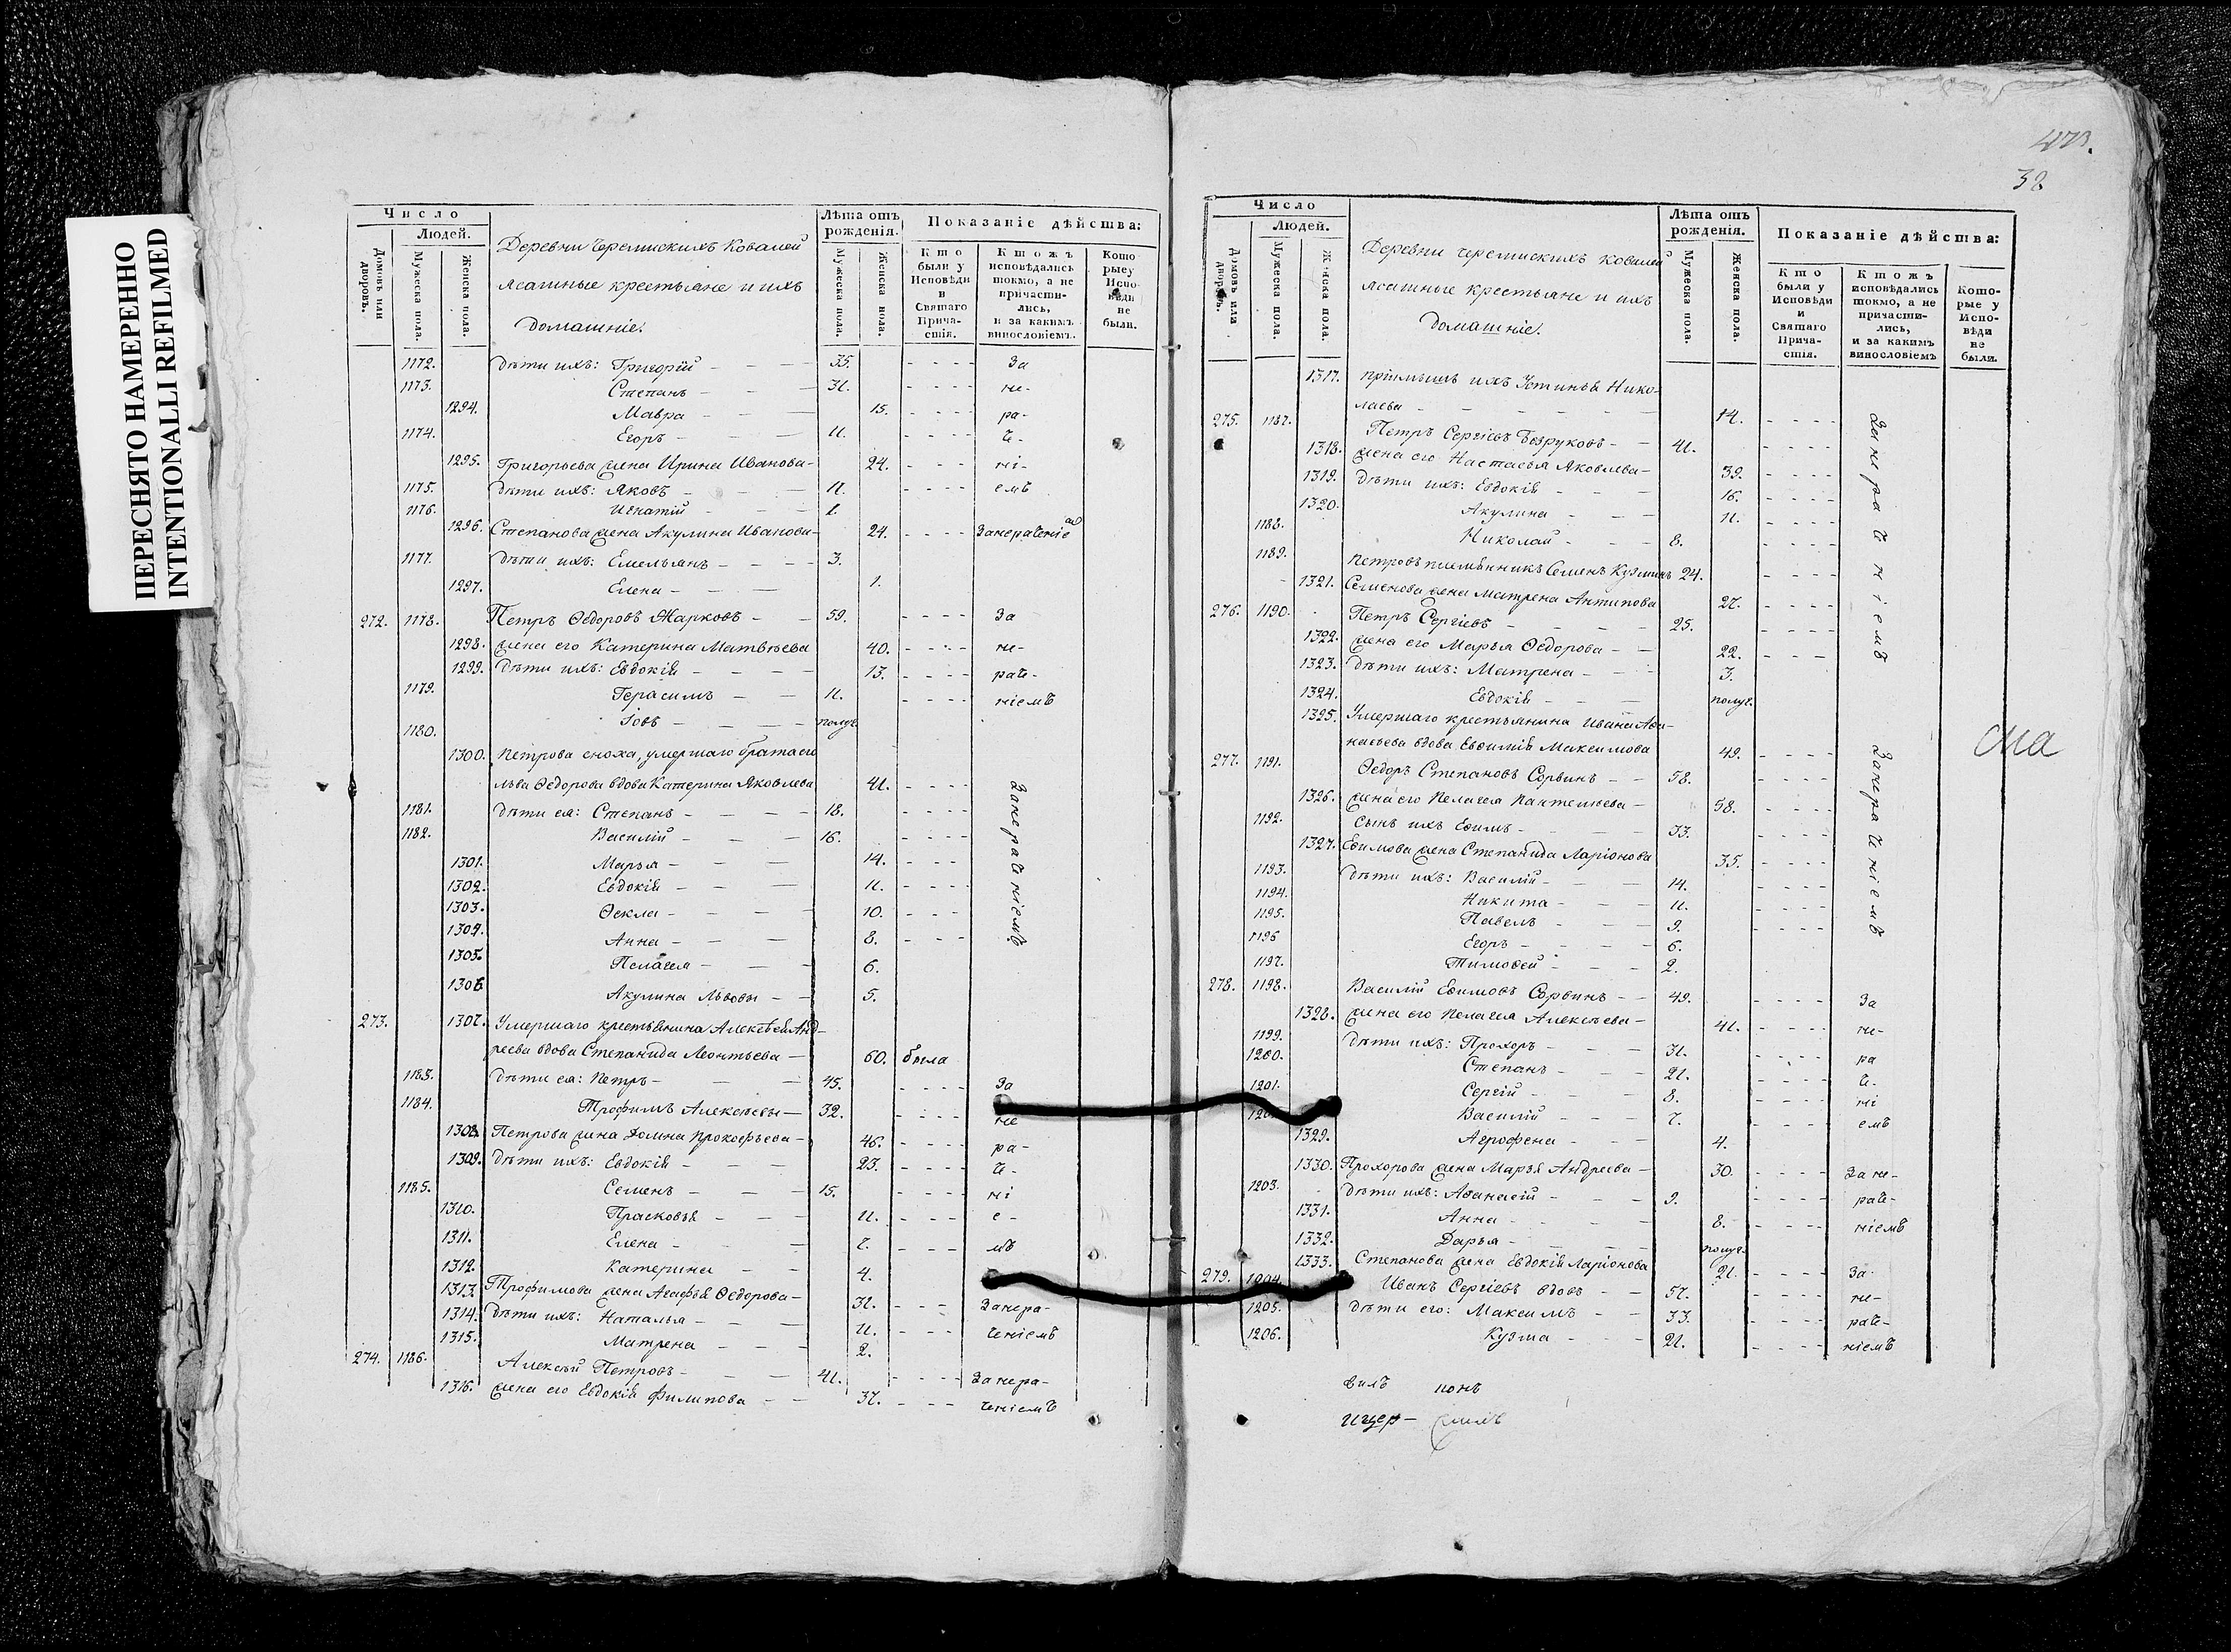 ПЕРЕСНЯТО НАМЕРЕННО
INTENTIONALLI REFILMED
Число
Людей.
Домовъ или дворовъ.
Мужеска пола.
Женска пола.
Деревни черемискихъ Ковалей
ясашные крестьяне и ихъ
домашніе.
Лѣта отъ рожденія.
Мужеска пола.
Женска пола.
Показаніе дѣйства:
Кто были у Исповѣди и Святаго Причастія.
Ктожъ исповѣдались токмо, а не причастились, и за какимъ винословіемъ.
Которыеу Исповѣди не были.
1172. дѣти ихъ: Григорій - - 35. - - - - За
1173. Степанъ - - - - - - не-
1294. Мавра - - 15. - - - - ра-
1174. Егоръ - - - - - - ч-
1295. Григорьева жена Ирина Иванова- 24. - - - - ні-
1175. дѣти ихъ: Яковъ - - - - - - емъ
1176. Игнатій - -
1296. Степанова жена Акулина Иванова- 24. - - - - Занераченіе
1177. дѣти ихъ: Емельянъ - - - 3.
1297. Елена - - - 1.
272. 1178. Петръ Ѳедоровъ Жарковъ - - 59. - - - - За
1298. жена его Катерина Матвѣева 40. - - - - не-
1299. дѣти ихъ: Евдокія - - - 13. - - - - рач-
1179. Герасимъ - - - - - - ніемъ
1180. Іовъ - - - полуг.
1300. Петрова сноха, умершаго брата его
льва Ѳедорова вдова Катерина Яковлева - - - -
Занераченіемъ
1181. дѣти ея: Степанъ - - - 18. - - - -
1182. Василій - - - 16. - - - -
1301. Марья - - - 14. - - -
1302. Евдокія - - - - - - -
1303. Ѳекла - - - 10. - - -
1304. Анна - - - 8. - - - -
1305. Пелагея - - - 6.
1306 Акулина Львовы - - 5.
273. 1307. Умершаго крестьянина Алексѣя Анд-
реева вдова Степанида Леонтьева - 60. была
1183. дѣти ея: Петръ - - - 45. - - - - За
1184. Трофимъ Алексѣевы - 32. - - - - не
1308. Петрова жена Домна Прокофьева - 46. - - - - ра-
1309. дѣти ихъ: Евдокія - - - 23. - - - - ч-
1185. Семенъ - - - 15. - - - - ні
1310. Прасковья - - - - - - - е-
1311. Елена - - - 7. - - - - мъ
1312. Катерина - - 4.
1313. Трофимова жена Агафья Ѳедорова - - - - Занера-
1314. дѣти ихъ: Наталья - - - - - - - ченіемъ
1315. Матрена - - - 2.
274. 1186. Алексѣй Петровъ - - - - - - - Занера-
1316. жена его Евдокія Филипова - - 37. - - - - ченіемъ
38
Число
Людей.
Домовъ или дворовъ.
Мужеска пола.
Женска пола.
Деревни черемискихъ ковалей
ясашные крестьяне и ихъ
домашніе.
Лѣта отъ рожденія.
Мужеска пола.
Женска пола.
Показаніе дѣйства:
Кто были у Исповѣди и Святаго Причастія.
Ктожъ исповѣдались токмо, а не причастились, и за какимъ винословіемъ
Которые у Исповѣди не были.
1317. пріимышъ ихъ Устинья Нико-
лаева - - - - 14. - - - -
Занераченіемъ
275. 1187. Петръ Сергіевъ Безруковъ - - - - - -
1318. жена его Настасья Яковлева - 39. - - - -
1319. дѣти ихъ: Евдокія - - - 16. - - - -
1320. Акулина - - - - - - -
1188. Николай - - - 8. - - - -
1189. Петровъ племянникъ Семенъ Кузминъ 24. - - - -
1321. Семенова жена Матрена Антипова 27. - - - -
276. 1190. Петръ Сергіевъ - - - - 25. - - - -
1322. жена его Марья Ѳедорова - - 22. - - -
1323. дѣти ихъ: Матрена - - - 3.
1324. Евдокія - - - полуг.
1325. Умершаго крестьянина Ивана Аѳа-
насьева вдова Евфимія Максимова 49. - - - -
Занераченіемъ
277. 1191. Ѳедоръ Степановъ Сорвинъ - - 58. - - - -
1326. жена его Пелагея Пантелѣева - 58. - - - -
1192. Сынъ ихъ Ефимъ - - - 33. - - - -
1327. Ефимова жена Степанида Ларіонова 35. - - - -
1193. дѣти ихъ: Василій - - - 14. - - - -
1194. Никита - - - - - - -
1195. Павелъ - - - 9. - - - -
1196 Егоръ - - - - 6.
1197. Тимоѳей - - - 2.
278. 1198. Василій Ефимовъ Сорвинъ - - 49. - - - - За
1328. жена его Пелагея Алексѣева - - - - - не-
1199. дѣти ихъ: Прохоръ - - - - - - - ра
1200. Степанъ - - - - - - - ч-
1201. Сергій - - - 8. - - - - ні
Василій - - - 7. - - - - емъ
1329. Агрофена - - - 4.
1330. Прохорова жена Марья Андреева - 30. - - - - Зане-
1203. дѣти ихъ: Аѳанасій - - - 9. - - - - рач-
1331. Анна - - - - 8. - - - - ніемъ
1332. Дарья - - - полуг.
1333. Степанова жена Евдокія Ларіонова - - - - За
279. 1204. Иванъ Сергіевъ вдовъ - - 57. - - - - не-
1205. дѣти его: Максимъ - - 33. - - - - рач-
1206. Кузма - - - - - - - ніемъ